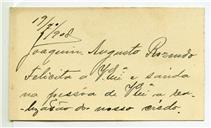 Joaquim Augusto Rozendo
Felicita a V. Ex.ª e saúda
na pessoa de V. Ex.ª a rea-
lização do nosso credo.